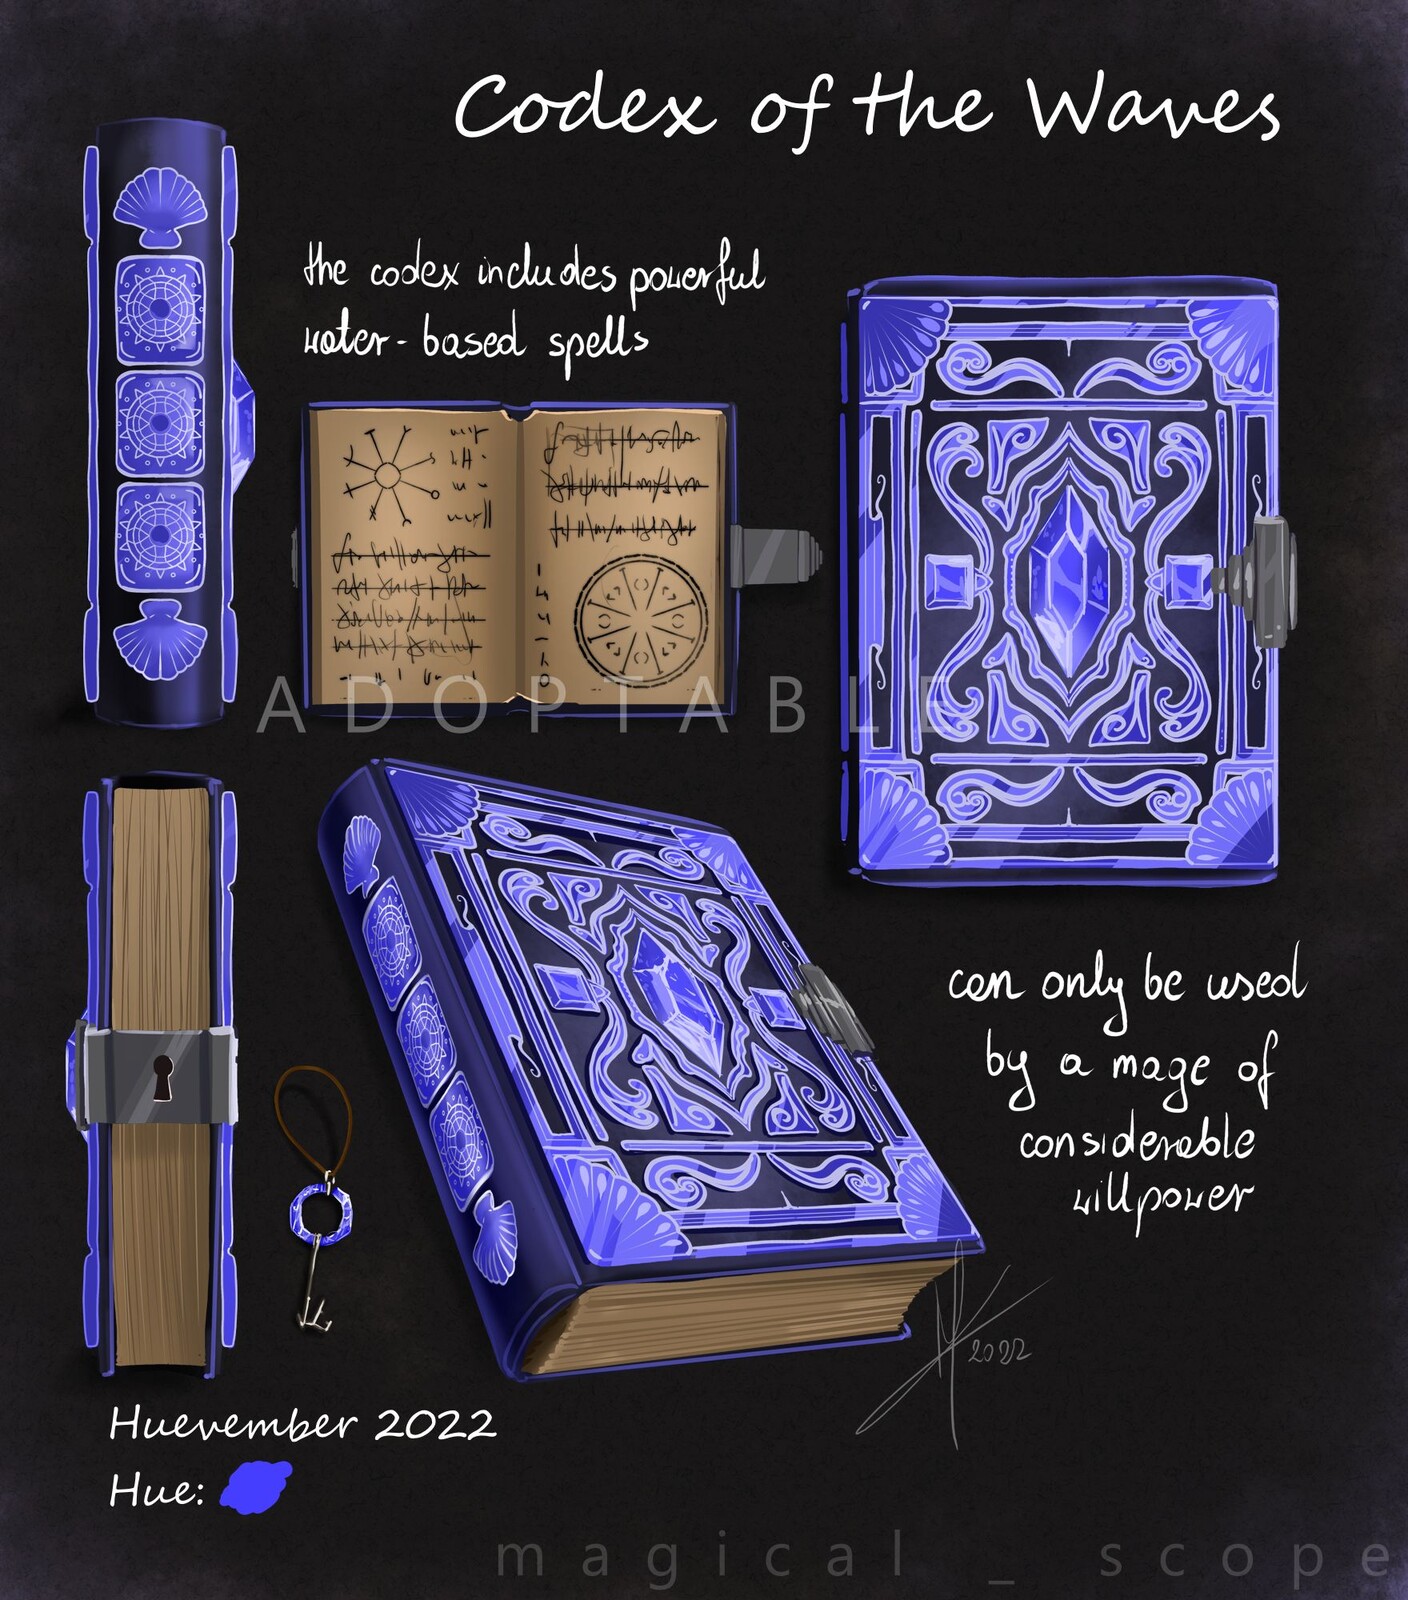 Codex of the Waves
the codex includes powerful
water-based spells
ADOPTABLE
can only be used
by a mage of
considerable
willpower
2022
Huevember 2022
Hue:
magical_scope